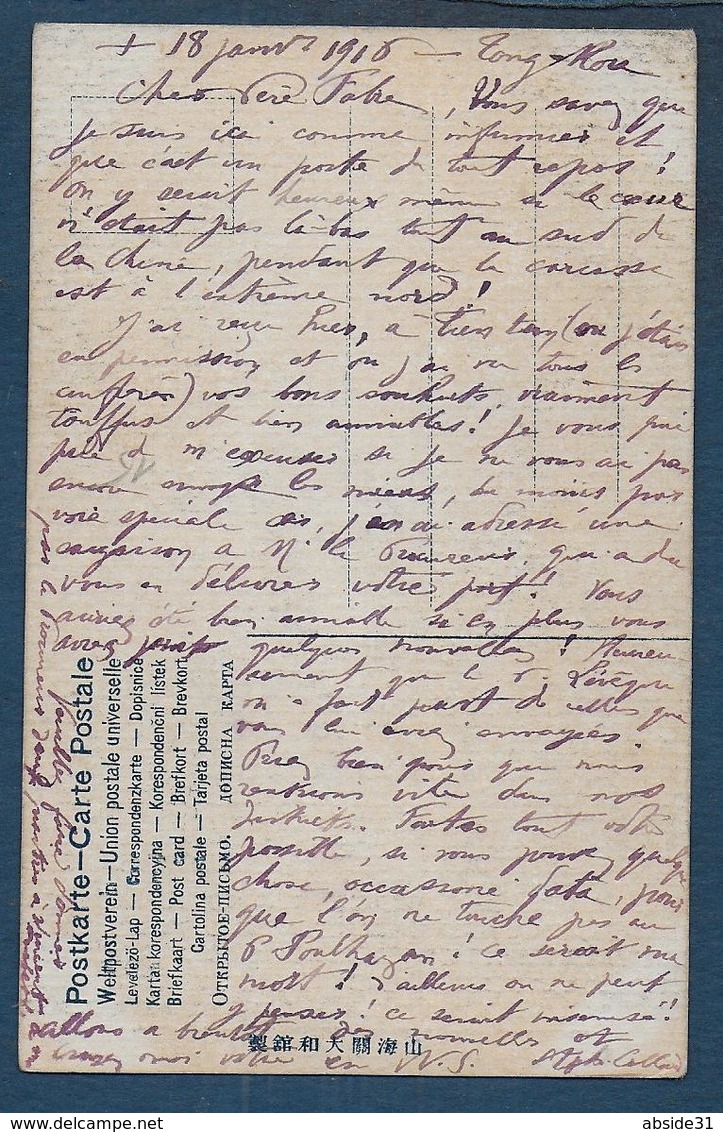 + 18 janvr 1916 — Tong-Kou
Cher Père Fabre, Vous savez que
je suis ici comme infirmier et
que c'est un poste de tout repos !
On y serait heureux même si le cœur
n'était pas là-bas tout au sud de
la Chine, pendant que la carcasse
est à l'extrême nord !
J'ai reçu hier, à Tien tsin (où j'étais
en permission et où j'ai vu tous les
confrères) vos bons souhaits, vraiment
touffus et bien aimables ! Je vous prie
de m'excuser si je ne vous ai pas
encore envoyé les miens, du moins par
voie spéciale car, j'en ai adressé une
cargaison à M. le Procureur, qui a du
vous en délivrer votre part ! Vous
auriez été bien aimable si en plus vous
aviez joint
quelques nouvelles ! Heureu
sement que le P. Lévêque
m'a fait part de celles que
vous lui avez envoyées
Priez bien pour que nous
rentrions vite dans nos
districts. Faites tout votre
possible, si vous pouvez quelque
chose, occasione data, pour
que l'on ne touche pas au
P. Poulhazan ! ce serait ma
mort ! d'ailleurs on ne peut
y penser ! ce serait insensé !!
allons a bientôt des nouvelles et
croyez moi votre en N. S.
Postkarte—Carte Postale
Weltpostverein—Union postale universelle
Levelező-Lap — Correspondenzkarte — Dopisnice
Karta korespondencyjna — Korespondenční lístek
Briefkaart — Post card — Brefkort — Brevkort
Cartolina postale — Tarjeta postal
ОТКРЫТОЕ-ПИСЬМО. ДОПИСНА КАРТА
製舘和大關海山
abside31